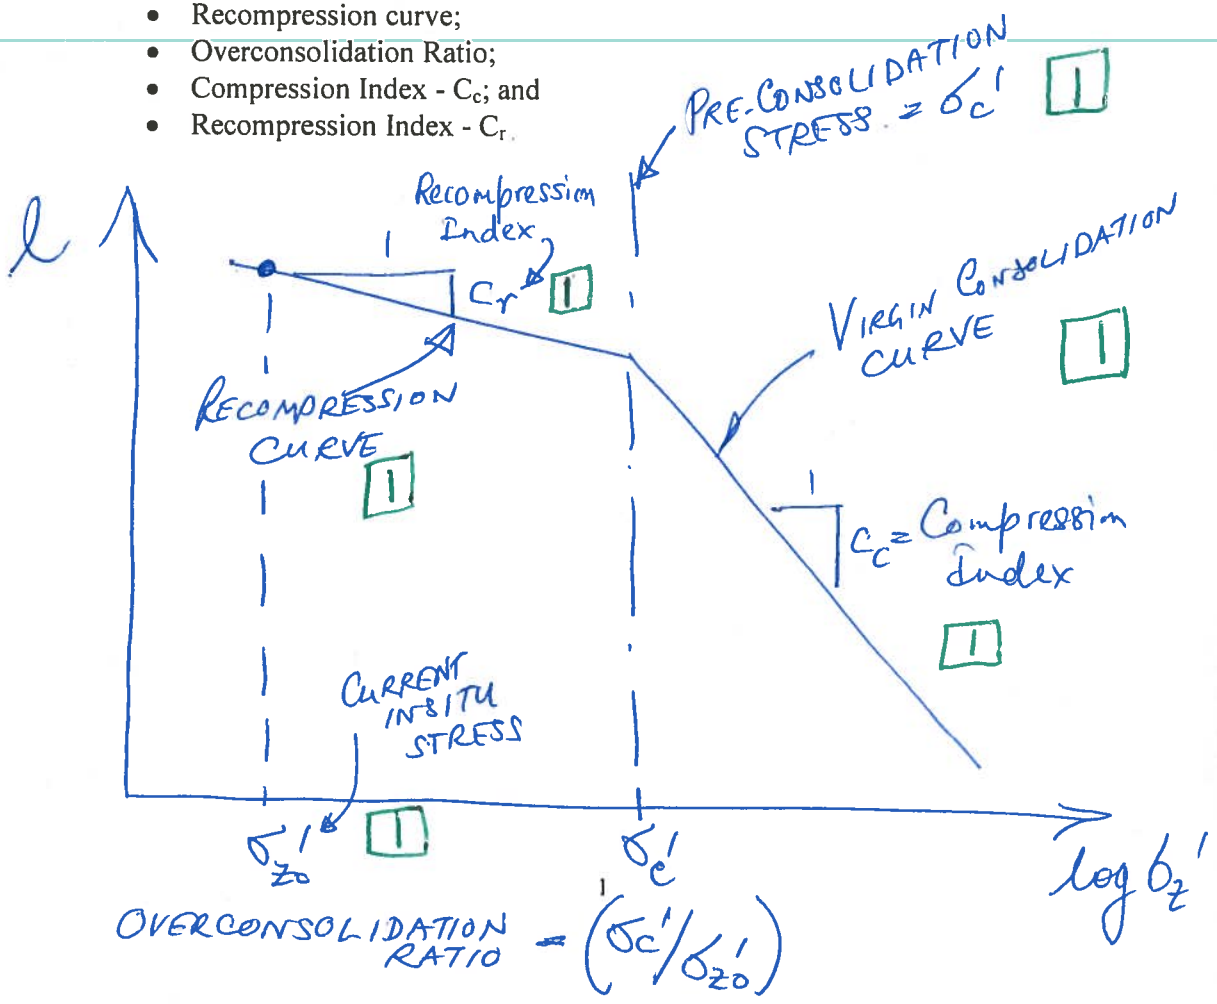 • Recompression curve;
• Overconsolidation Ratio;
• Compression Index - Cc; and
• Recompression Index - Cr.
PRE-CONSOLIDATION
STRESS = σc'
1
e
Recompression
Index
1
Cr
1
VIRGIN CONSOLIDATION
CURVE
1
RECOMPRESSION
CURVE
1
1
Cc = Compression
Index
1
CURRENT
INSITU
STRESS
1
σzo'
σc'
log σz'
1
OVERCONSOLIDATION
RATIO = (σc'/σzo')